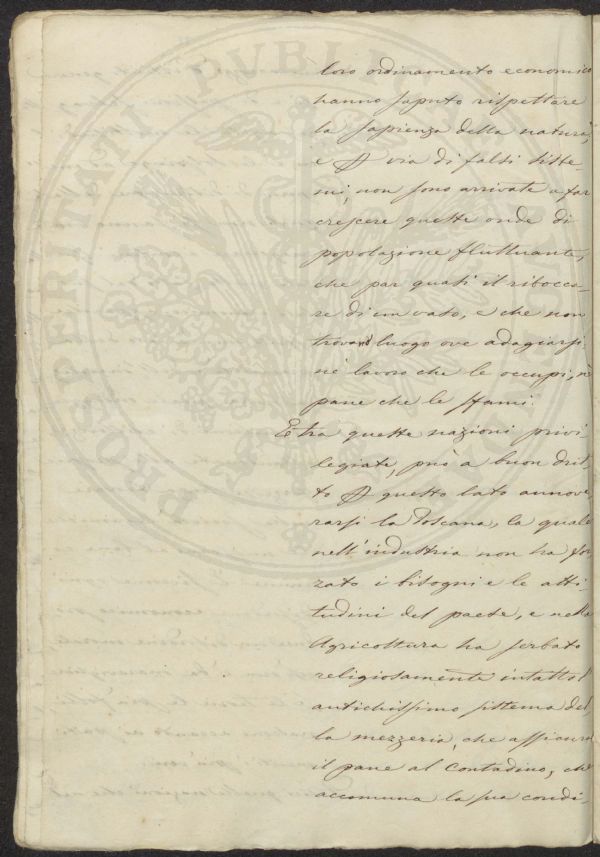 loro ordinamento economico
hanno saputo rispettare
la sapienza della natura,
e P via di falsi siste-
mi, non sono arrivate a far
crescere queste onde di
popolazione fluttuante,
che par quasi il ribocca-
re di un vaso, e che non
trovano luogo ove adagiarsi,
nè lavoro che le occupi, nè
pane che le sfami.
E tra queste nazioni privi
legiate, può a buon drit-
to P questo lato annove-
rarsi la Toscana, la quale
nell'industria non ha for-
zato i bisogni e le atti-
tudini del paese, e nella
Agricoltura ha serbato
religiosamente intatto l'
antichissimo sistema del
la mezzeria, che assicura
il pane al Contadino, che
accomuna la sua condi-
PROSPERITATI PUBLICAE